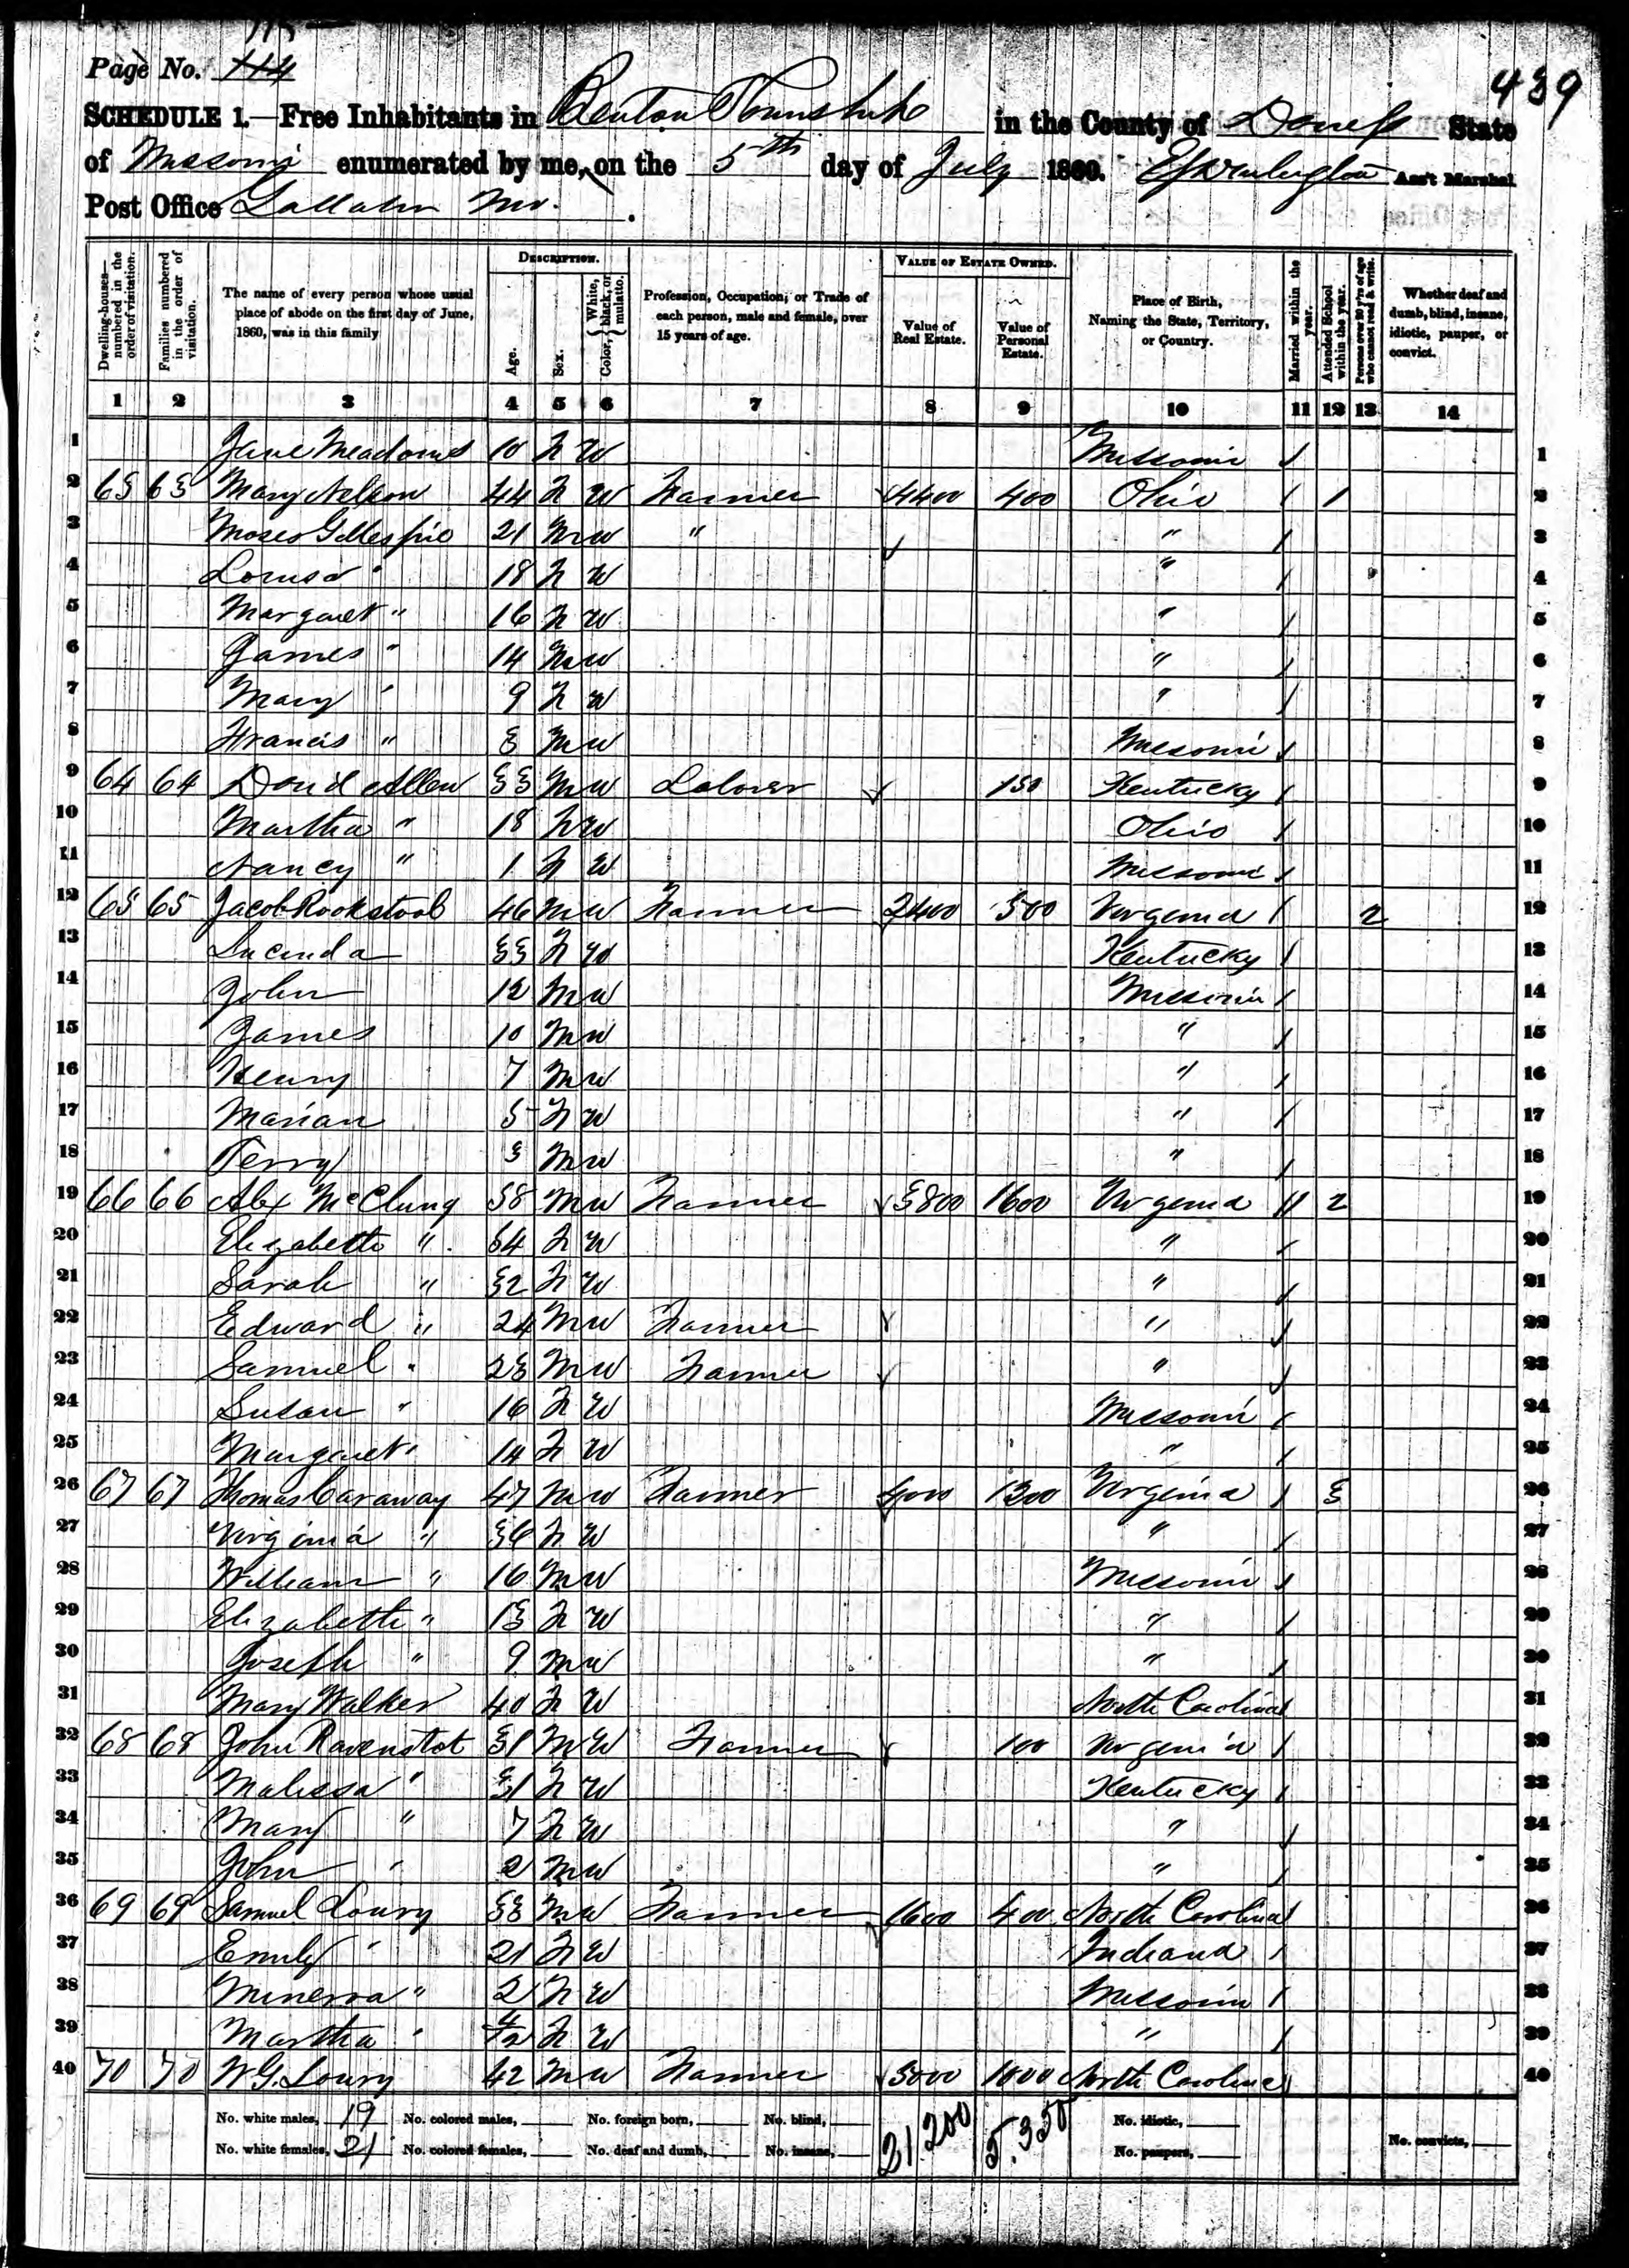 115
Page No. 114
439
SCHEDULE 1.—Free Inhabitants in Benton Township in the County of Daviess State
of Missouri enumerated by me, on the 5th day of July 1860. Ass't Marshal
Post Office Gallatin Mo.
Dwelling-houses—numbered in the order of visitation. Families numbered in the order of visitation. The name of every person whose usual place of abode on the first day of June, 1860, was in this family DESCRIPTION. Age. Sex. Color, White, black, or mulatto. Profession, Occupation, or Trade of each person, male and female, over 15 years of age. VALUE OF ESTATE OWNED. Value of Real Estate. Value of Personal Estate. Place of Birth, Naming the State, Territory, or Country. Married within the year. Attended School within the year. Persons over 20 y'rs of age who cannot read & write. Whether deaf and dumb, blind, insane, idiotic, pauper, or convict.
1 2 3 4 5 6 7 8 9 10 11 12 13 14
1 Jane Meadows 10 F W Missouri / 1
2 63 63 Mary Nelson 44 F W Farmer 4400 400 Ohio / 1 2
3 Moses Gillespie 21 M W " " / 3
4 Louisa " 18 F W " / 4
5 Margaret " 16 F W " / 5
6 James " 14 M W " / 6
7 Mary " 9 F W " / 7
8 Francis " 3 M W Missouri / 8
9 64 64 David Allen 33 M W Laborer 150 Kentucky / 9
10 Martha " 18 F W Ohio / 10
11 Nancy " 1 F W Missouri / 11
12 65 65 Jacob Rookstool 46 M W Farmer 2400 500 Virginia / 2 12
13 Lucinda 33 F W Kentucky / 13
14 John 12 M W Missouri / 14
15 James 10 M W " / 15
16 Henry 7 M W " / 16
17 Marian 5 F W " / 17
18 Perry 3 M W " / 18
19 66 66 Alex McClung 58 M W Farmer 3800 1600 Virginia // 2 19
20 Elizabeth " 54 F W " / 20
21 Sarah " 32 F W " / 21
22 Edward " 24 M W Farmer " / 22
23 Samuel " 23 M W Farmer " / 23
24 Susan " 16 F W Missouri / 24
25 Margaret " 14 F W " / 25
26 67 67 Thomas Caraway 47 M W Farmer 4000 1300 Virginia / 3 26
27 Virginia " 36 F W " / 27
28 William " 16 M W Missouri / 28
29 Elizabeth " 13 F W " / 29
30 Joseph " 9 M W " / 30
31 Mary Walker 40 F W North Carolina / 31
32 68 68 John Ravenstot 31 M W Farmer 100 Virginia / 32
33 Malissa " 31 F W Kentucky / 33
34 Mary " 7 F W " / 34
35 John " 2 M W " / 35
36 69 69 Samuel Loury 33 M W Farmer 1600 400 North Carolina / 36
37 Emily " 21 F W Indiana / 37
38 Minerva " 2 F W Missouri / 38
39 Martha " F W " / 39
40 70 70 W G. Loury 42 M W Farmer 5000 1000 North Carolina / 40
No. white males, 19 No. colored males, No. foreign born, No. blind, 21,200 5,350 No. idiotic,
No. white females, 21 No. colored females, No. deaf and dumb, No. insane, No. paupers, No. convicts,